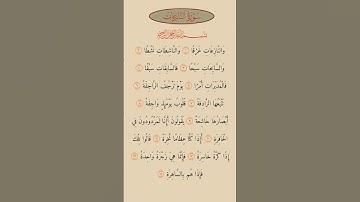 سورة النازعات
بسم الله الرحمن الرحيم
وَالنَّازِعَاتِ غَرْقًا ١ وَالنَّاشِطَاتِ نَشْطًا ٢
وَالسَّابِحَاتِ سَبْحًا ٣ فَالسَّابِقَاتِ سَبْقًا ٤
فَالْمُدَبِّرَاتِ أَمْرًا ٥ يَوْمَ تَرْجُفُ الرَّاجِفَةُ ٦
تَتْبَعُهَا الرَّادِفَةُ ٧ قُلُوبٌ يَوْمَئِذٍ وَاجِفَةٌ ٨
أَبْصَارُهَا خَاشِعَةٌ ٩ يَقُولُونَ أَإِنَّا لَمَرْدُودُونَ فِي
الْحَافِرَةِ ١٠ أَإِذَا كُنَّا عِظَامًا نَّخِرَةً ١١ قَالُوا تِلْكَ
إِذًا كَرَّةٌ خَاسِرَةٌ ١٢ فَإِنَّمَا هِيَ زَجْرَةٌ وَاحِدَةٌ ١٣
فَإِذَا هُم بِالسَّاهِرَةِ ١٤